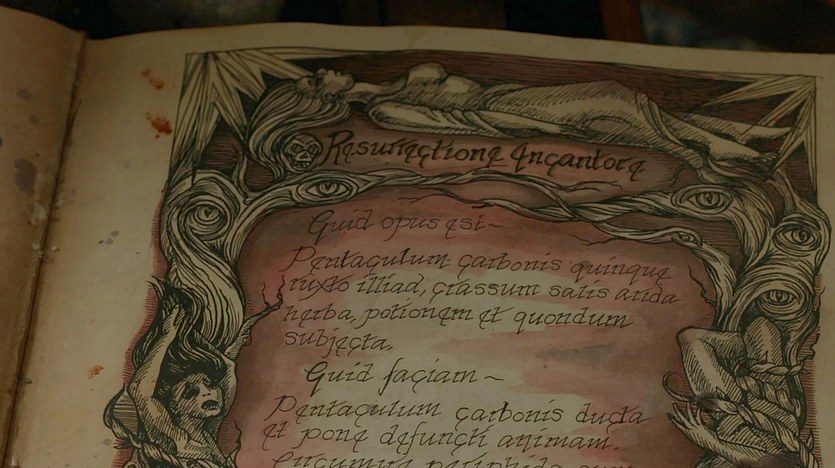 Resurrectione Encantore
Quid opus est~
Pentaculum carbonis quinque
iuxto illiad, crassum salis arida
herba, potionem et quondum
subjecta.
Quid faciam~
Pentaculum carbonis ducta
et pone defuncti animam.